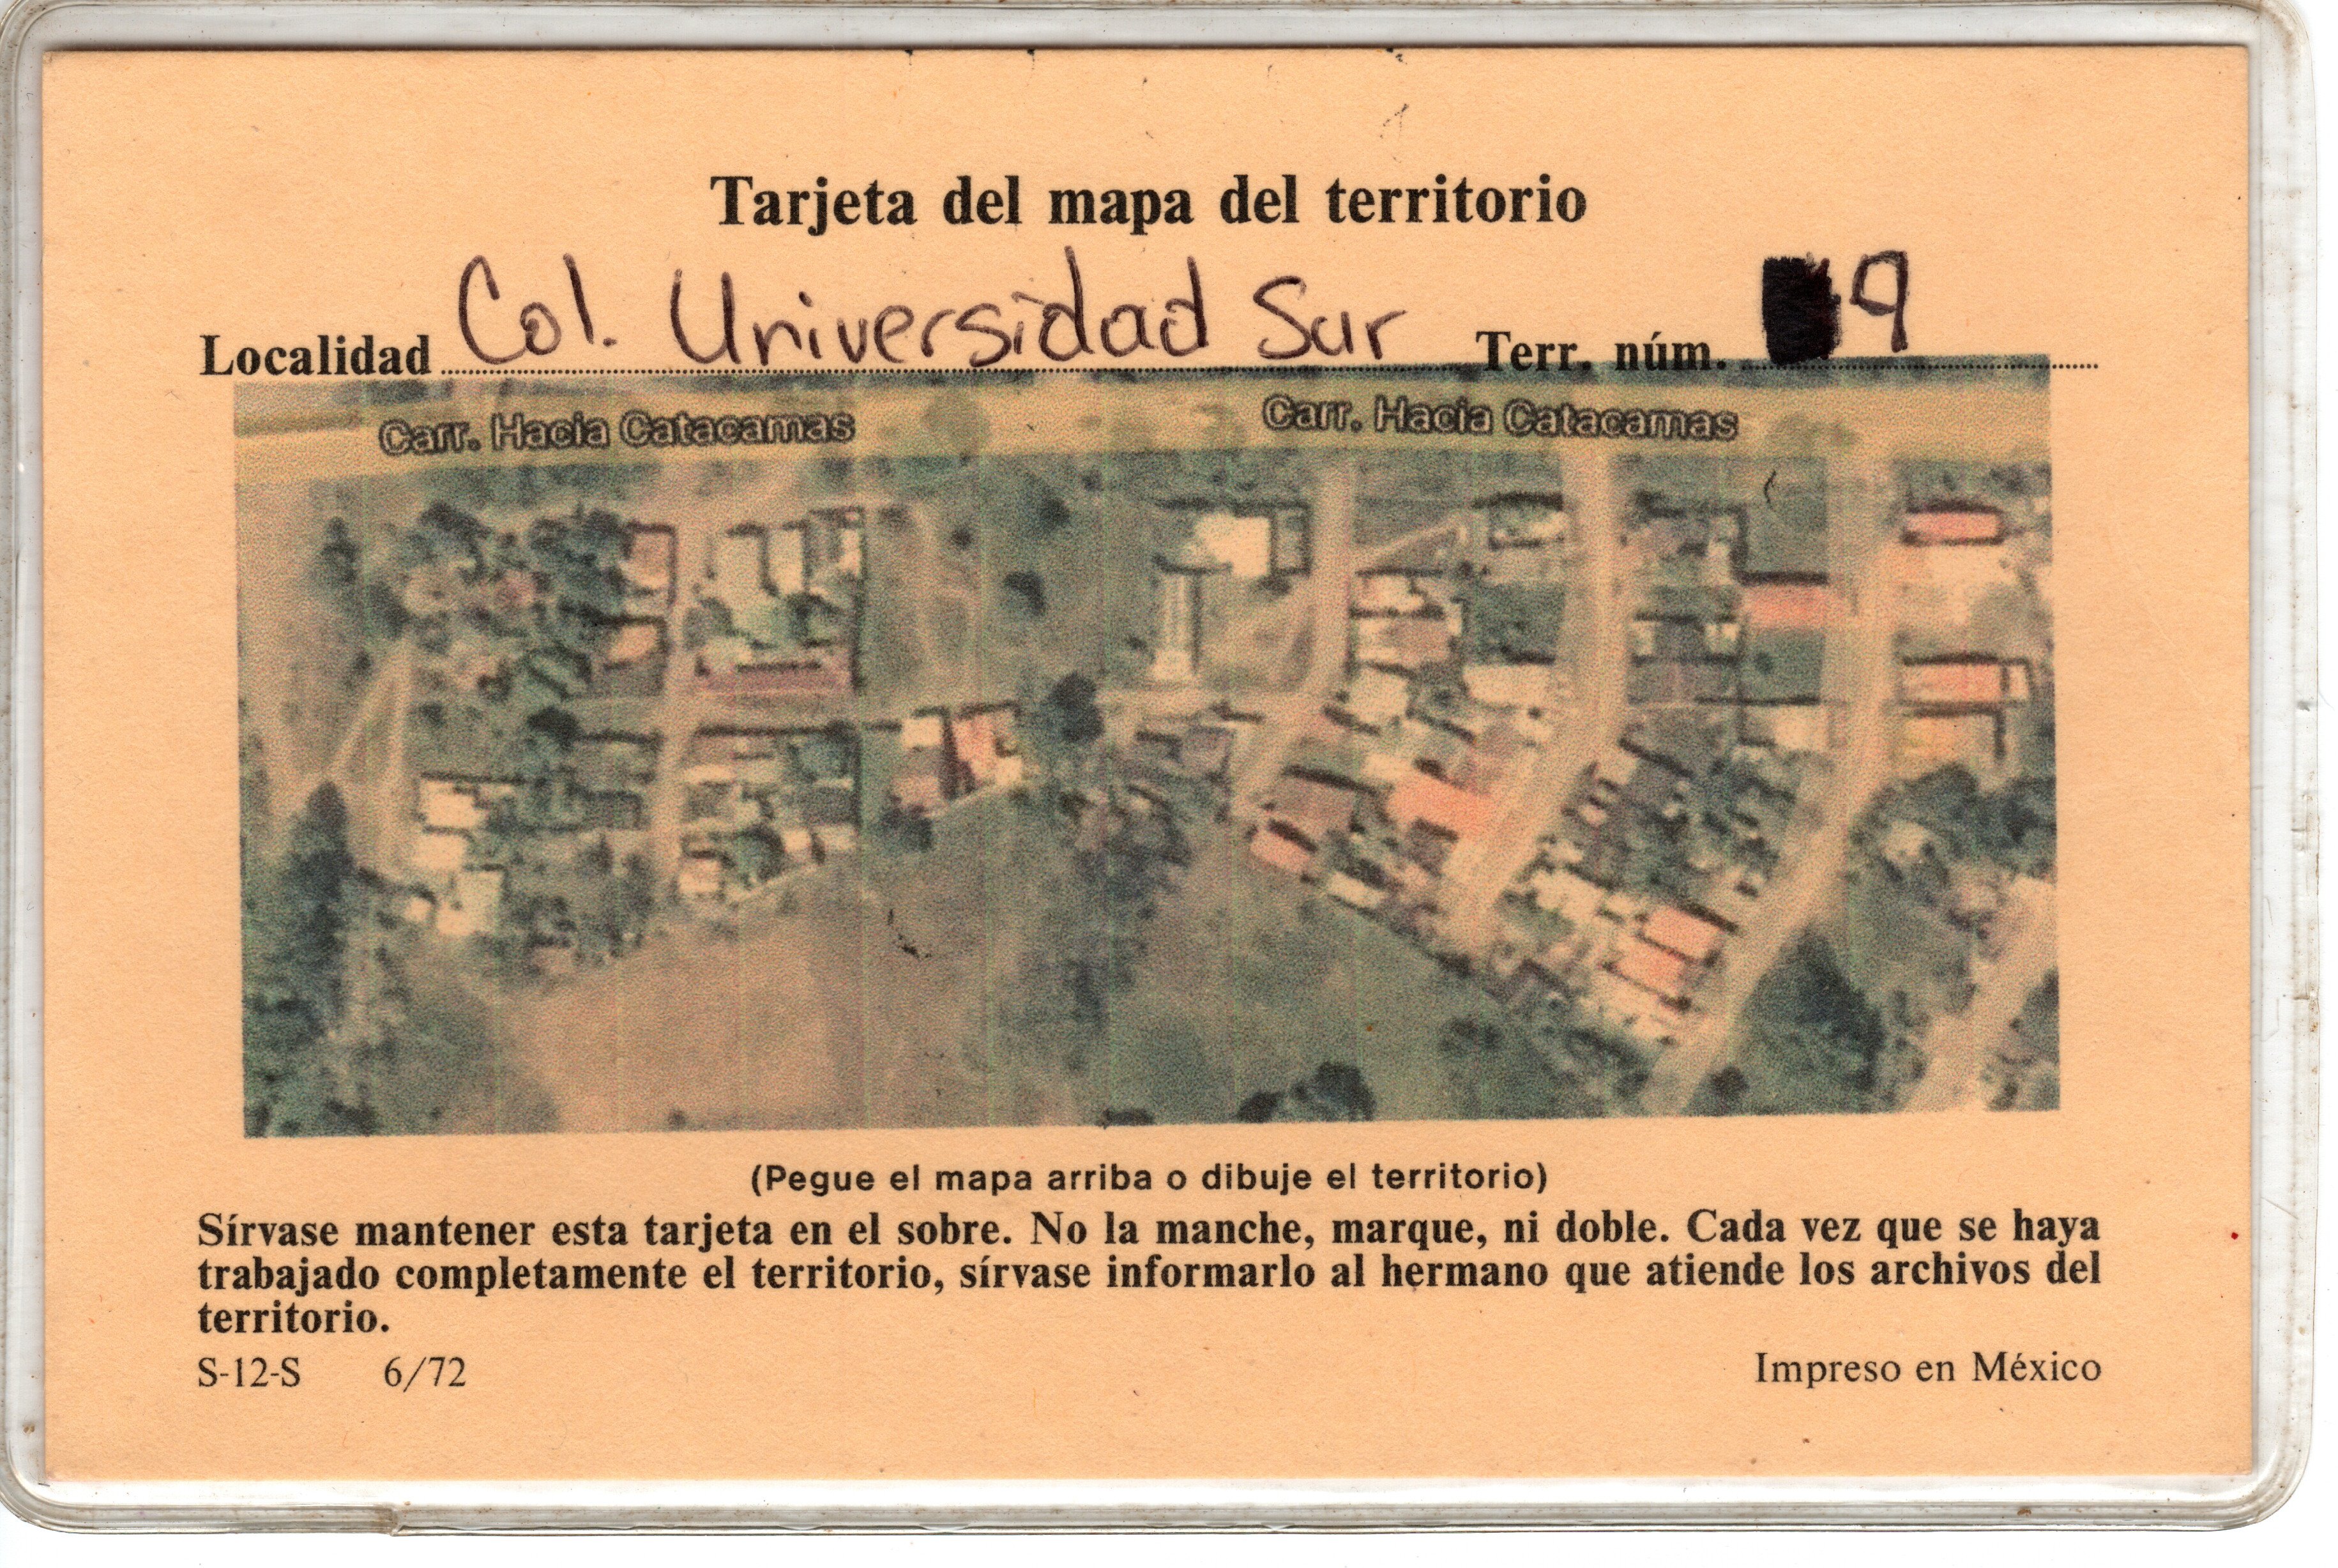 Tarjeta del mapa del territorio
Localidad Col. Universidad Sur Terr. núm. 9
Carr. Hacia Catacamas Carr. Hacia Catacamas
(Pegue el mapa arriba o dibuje el territorio)
Sírvase mantener esta tarjeta en el sobre. No la manche, marque, ni doble. Cada vez que se haya
trabajado completamente el territorio, sírvase informarlo al hermano que atiende los archivos del
territorio.
S-12-S 6/72 Impreso en México